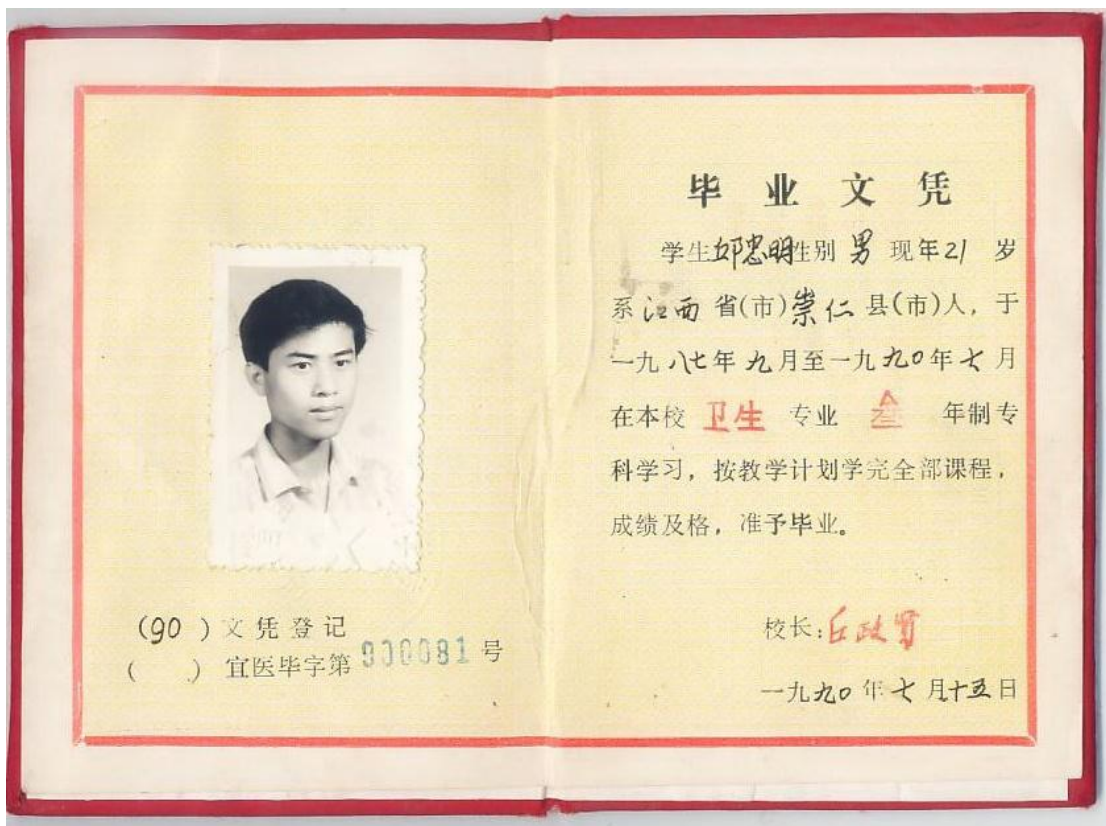 (90 ) 文凭登记
( ) 宜医毕字第 900081 号
毕业文凭
学生邱忠明性别 男 现年21 岁
系江西省(市)崇仁县(市)人，于
一九八七年九月至一九九0年七月
在本校 卫生 专业 叁 年制专
科学习，按教学计划学完全部课程，
成绩及格，准予毕业。
校长:丘政贤
一九九0年七月十五日